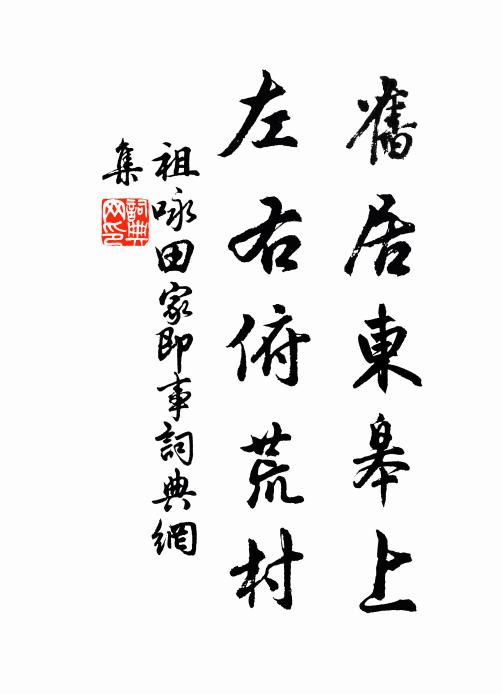 舊居東皋上
左右俯荒村
祖咏田家即事詞典網
集
詞典
网印